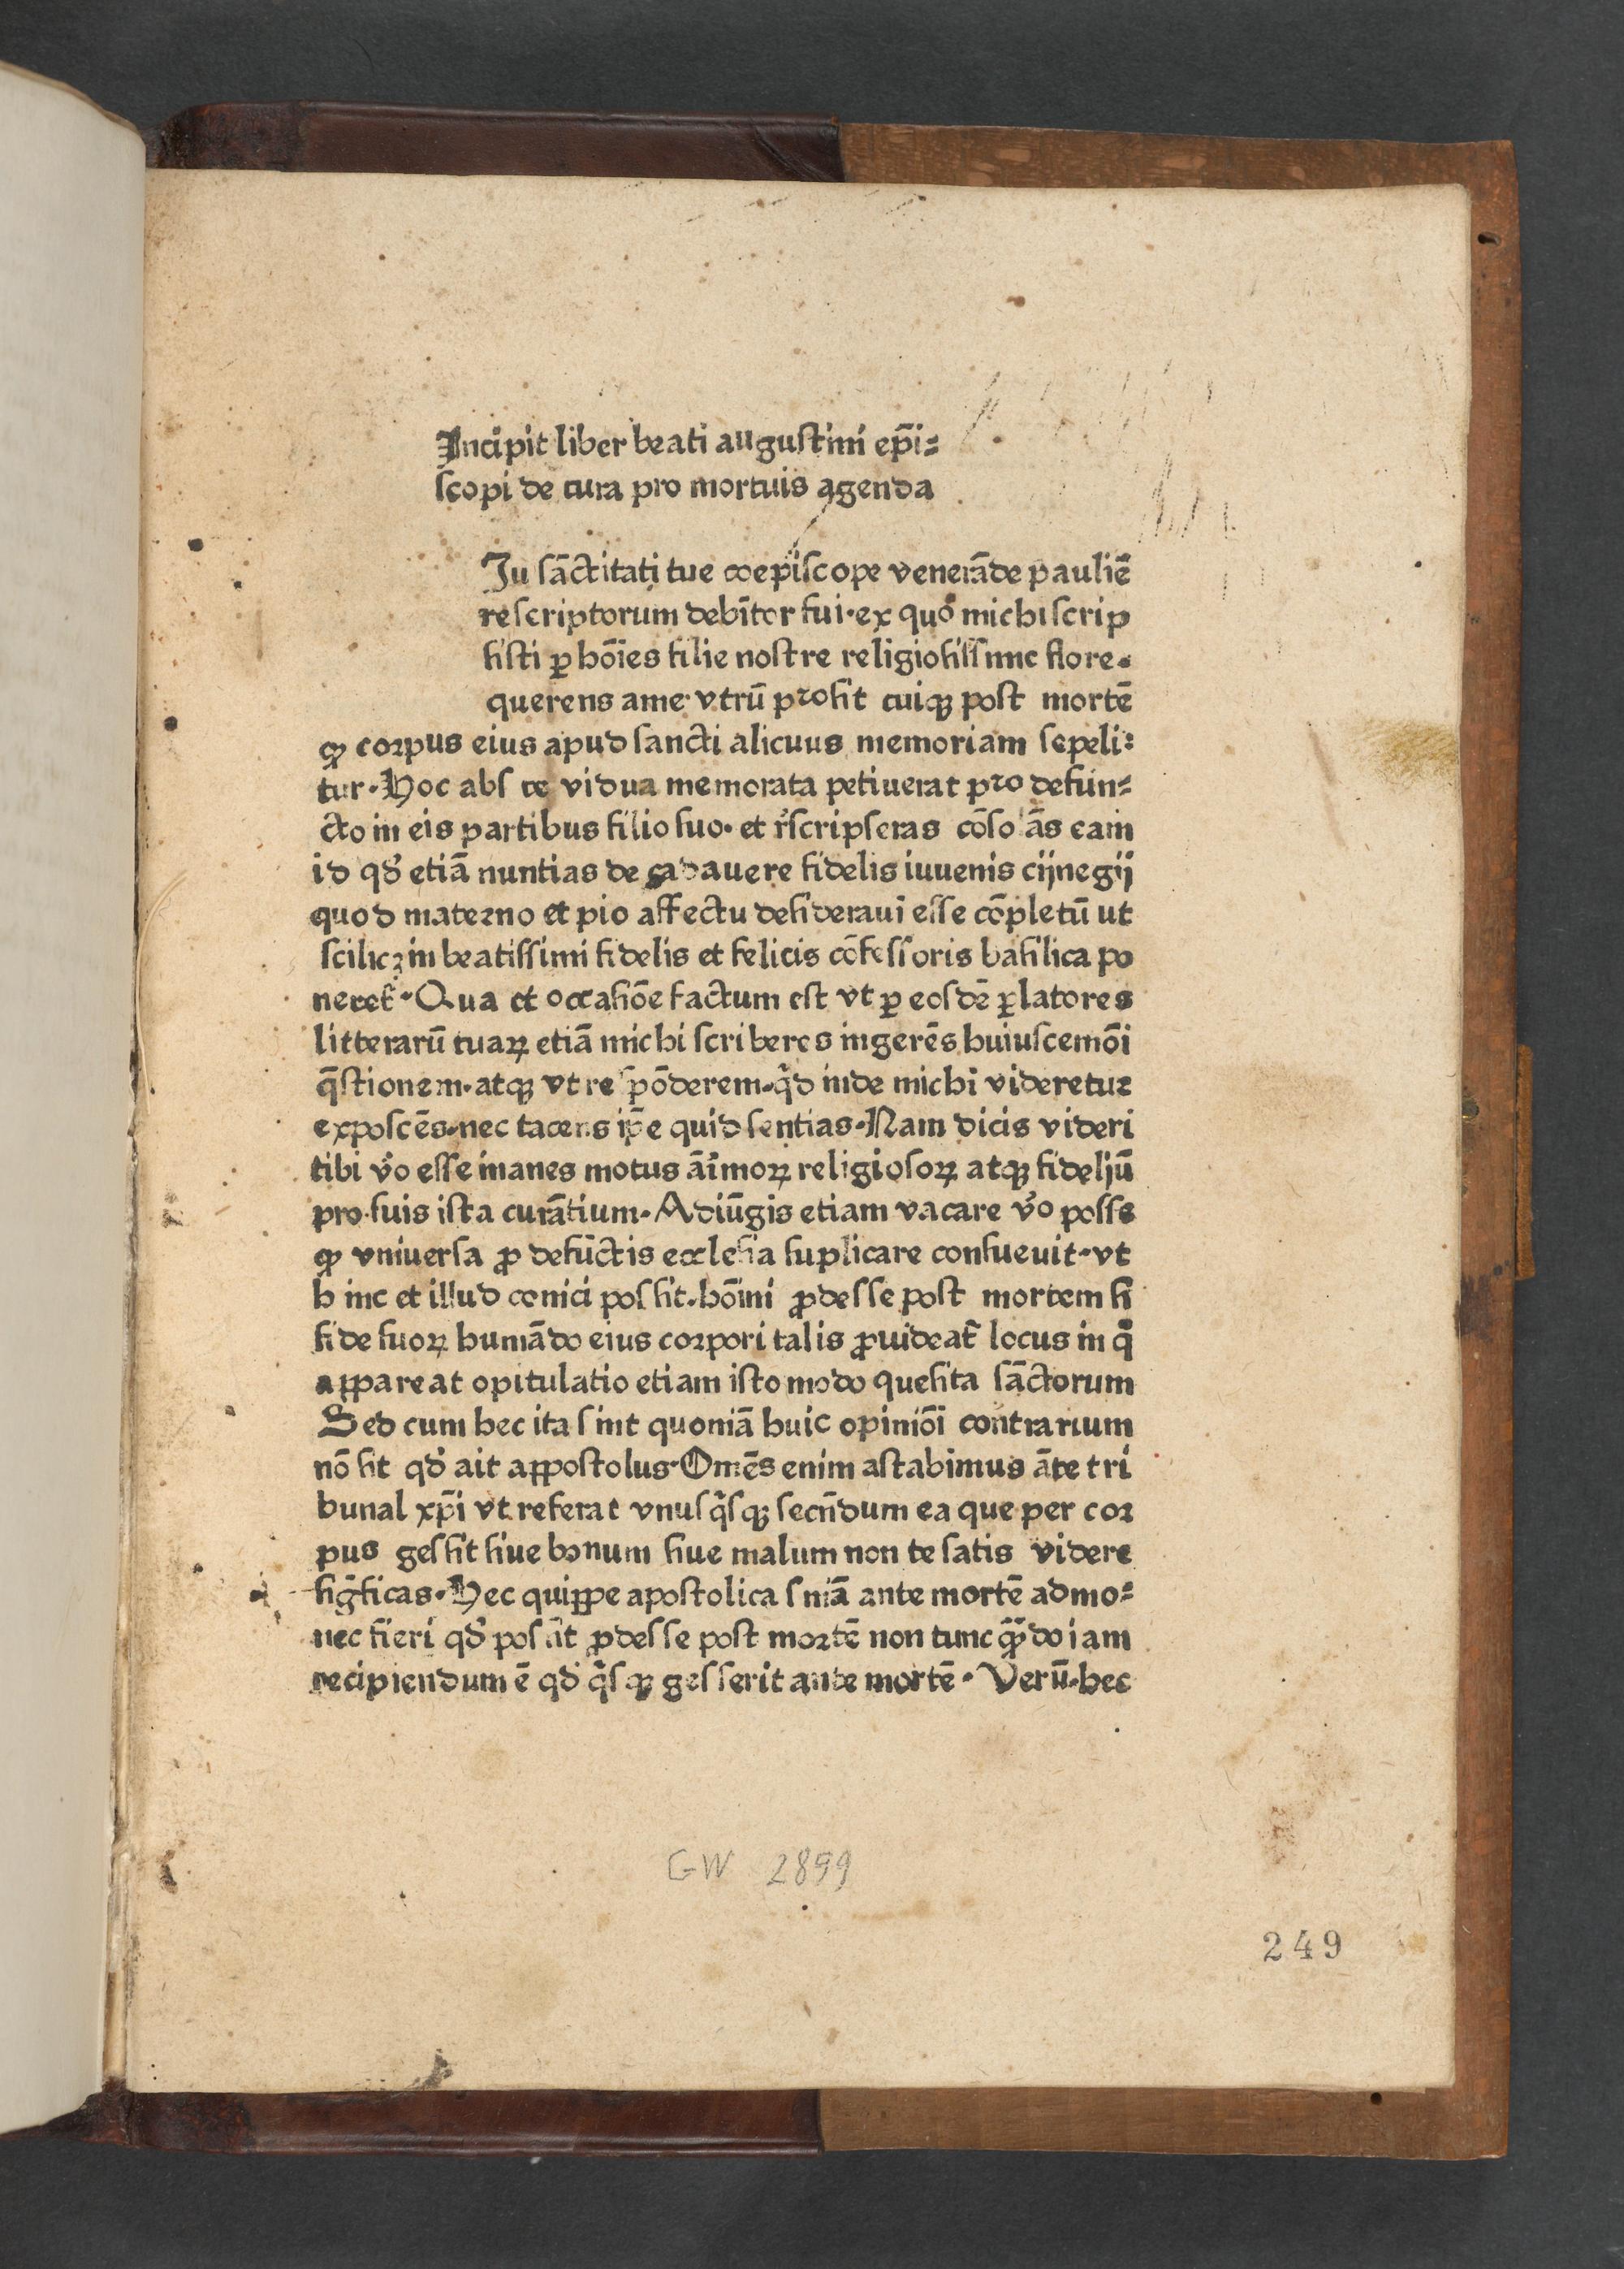 Incipit liber beati augustini ep̄i⸗
scopi de cura pro mortuis agenda
Iu sāctitati tue coepiscope venerāde pauliē
rescriptorum debitor fui·ex quo michi scrip
sisti ꝑ hōies filie nostre religiosissime flore·
querens a me vtrū prosit cuiqꝫ post mortē
ꝙ corpus eius apud sancti alicuus memoriam sepeli⸗
tur·Hoc abs te vidua memorata petiuerat pro defun⸗
cto in eis partibus filio suo· et r̄scripseras cōso ās eam
id qđ etiā nuntias de cadauere fidelis iuuenis cijnegij
quod materno et pio affectu desideraui esse cōpletū ut
scilicꝫ in beatissimi fidelis et felicis cōfessoris basilica po
neret᷑·Qua et occasiōe factum est vt ꝑ eosdē ꝑlatores
litterarū tuaꝝ etiā michi scriberes ingerēs huiuscemōi
q̄stionem·atqꝫ vt respōderem·qd inde michi videretur
exposcēs·nec tacens ip̄e quid sentias·Nam dicis videri
tibi v̊o esse inanes motus āimoꝝ religiosoꝝ atqꝫ fideliū
pro suis ista curātium·Adiūgis etiam vacare v̊o posse
ꝙ vniuersa ꝓ defūctis ecclesia suplicare consueuit·vt
hinc et illud conici possit·hōini ꝓdesse post mortem si
fide suoꝝ humādo eius corpori talis ꝓuideat᷑ locus in q̊
appareat opitulatio etiam isto modo quesita sāctorum
Sed cum hec ita sint quoniā huic opiniōi contrarium
nō sit qđ ait appostolus·Omēs enim astabimus āte tri
bunal xp̄i vt referat vnusq̊sqꝫ secūdum ea que per cor
pus gessit siue bonum siue malum non te satis videre
sigf̄icas·Hec quippe apostolica sn̄ia ante mortē admo⸗
nec fieri qđ possit ꝓdesse post mortē non tunc qn̄do iam
recipiendum ē qđ q̊sqꝫ gesserit ante mortē·Verū·hec
GW 2899
249